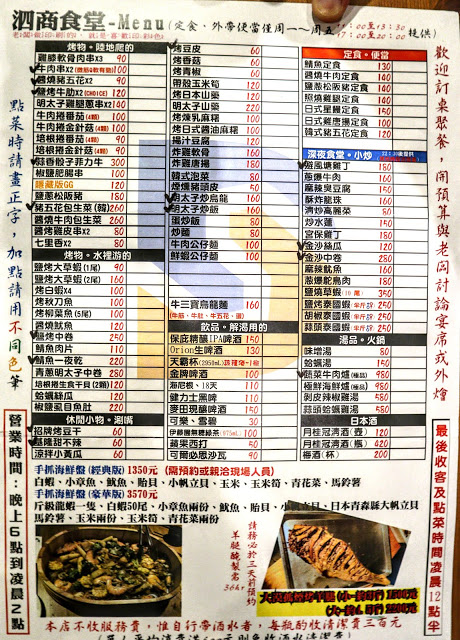 泗商食堂-Menu(定食、外帶便當僅周一~周五 提供)
烤物。陸地爬的
雞膝軟骨肉串X3 90
牛肉串X2 100
醬燒豬五花X2 90
鹽烤牛肋X2 (CHOICE) 120
明太子雞腿蔥串X2 140
牛肉捲番茄(4顆) 100
牛肉捲金針菇(4顆) 100
培根捲番茄(4顆) 90
培根捲金針菇(4顆) 90
蒜香骰子菲力牛 300
椒鹽肥腸串 100
隱藏版GG 120
鹽蔥松阪豬 180
豬五花包生菜(韓) 260
醬燒牛肉包生菜 260
醬烤雞皮串X2 80
七里香X2 80
烤物。水裡游的
鹽烤大草蝦(1尾) 90
鹽烤大草蝦(2尾) 160
烤白蝦X4 100
烤秋刀魚 100
烤柳葉魚(5尾) 100
醬燒魷魚 120
鹽烤中卷 250
鯖魚肉片 110
鯖魚一夜乾 220
青蔥明太子中卷 280
培根捲生食干貝(2顆) 120
蛤蠣絲瓜 120
椒鹽虱目魚肚 220
休閒小物。涮嘴
招牌烤豆干 60
基隆甜不辣 60
涼拌小黃瓜 60
烤豆皮 60
烤香菇 60
烤青椒 60
帶殼玉米筍 120
烤日本山藥 120
明太子山藥 220
烤煉乳麻糬 100
烤日式醬油麻糬 100
揚汁豆腐 120
炸雞軟骨 120
炸雞唐揚 120
韓式泡菜 80
煙燻豬頭皮 50
明太子炒烏龍 160
明太子炒飯 160
蛋炒飯 80
炒麵 80
牛肉公仔麵 100
鮮蝦公仔麵 100
牛三寶烏龍麵 160
(牛筋、牛肚、牛五花、蛋)
飲品。解渴用的
保庇精釀IPA啤酒 150
Orion生啤酒 130
金牌啤酒 100
海尼根、18天 110
健力士黑啤 110
麥田現釀啤酒 150
可樂、雪碧 30
蘋果西打 50
可爾必思沙瓦 90
定食。便當
鯖魚定食 130
醬燒牛肉定食 140
鹽蔥松阪豬定食 140
照燒雞腿定食 140
日式星鰻定食 150
日式雞唐揚定食 100
韓式豬五花定食 120
深夜食堂。小炒
避風塘雞丁 180
蔥爆牛肉 180
麻辣臭豆腐 150
酥炸龍珠 160
清炒高麗菜 80
炒水蓮 150
宮保雞丁 180
金沙絲瓜 120
金沙中卷 280
麻辣魷魚 160
蔥爆鴕鳥肉 180
鹽燒草蝦(10尾) 350
鹽烤泰國蝦 半斤 250
胡椒泰國蝦 半斤 250
蒜頭泰國蝦 半斤 250
湯品。火鍋
味噌湯 80
蛤蠣湯 150
蔬菜牛肉爐(極品) 980
極鮮海鮮爐(極品) 980
剝皮辣椒雞湯 580
蒜頭蛤蠣雞湯 580
日本酒
月桂冠清酒(壺) 120
月桂冠清酒(瓶) 420
梅酒(杯) 200
歡迎訂桌聚餐，開預算與老闆討論宴席或外燴
點菜時請畫正字，加點請用不同色筆
營業時間：晚上6點到凌晨2點
最後收客及點菜時間凌晨12點半
手抓海鮮盤(經典版) 1350元 (需預約或親洽現場人員)
白蝦、小章魚、魷魚、貽貝、小帆立貝、玉米、玉米筍、青花菜、馬鈴薯
手抓海鮮盤(豪華版) 3570元
斤級龍蝦一隻、白蝦50尾、小章魚兩份、魷魚、貽貝、小帆立貝、日本青森縣大帆立貝
馬鈴薯、玉米兩份、玉米筍、青花菜兩份
請務必於三天前預約
羊腿醃製需36hr
本店不收服務費，惟自行帶酒水者，每瓶酌收清潔費三百元